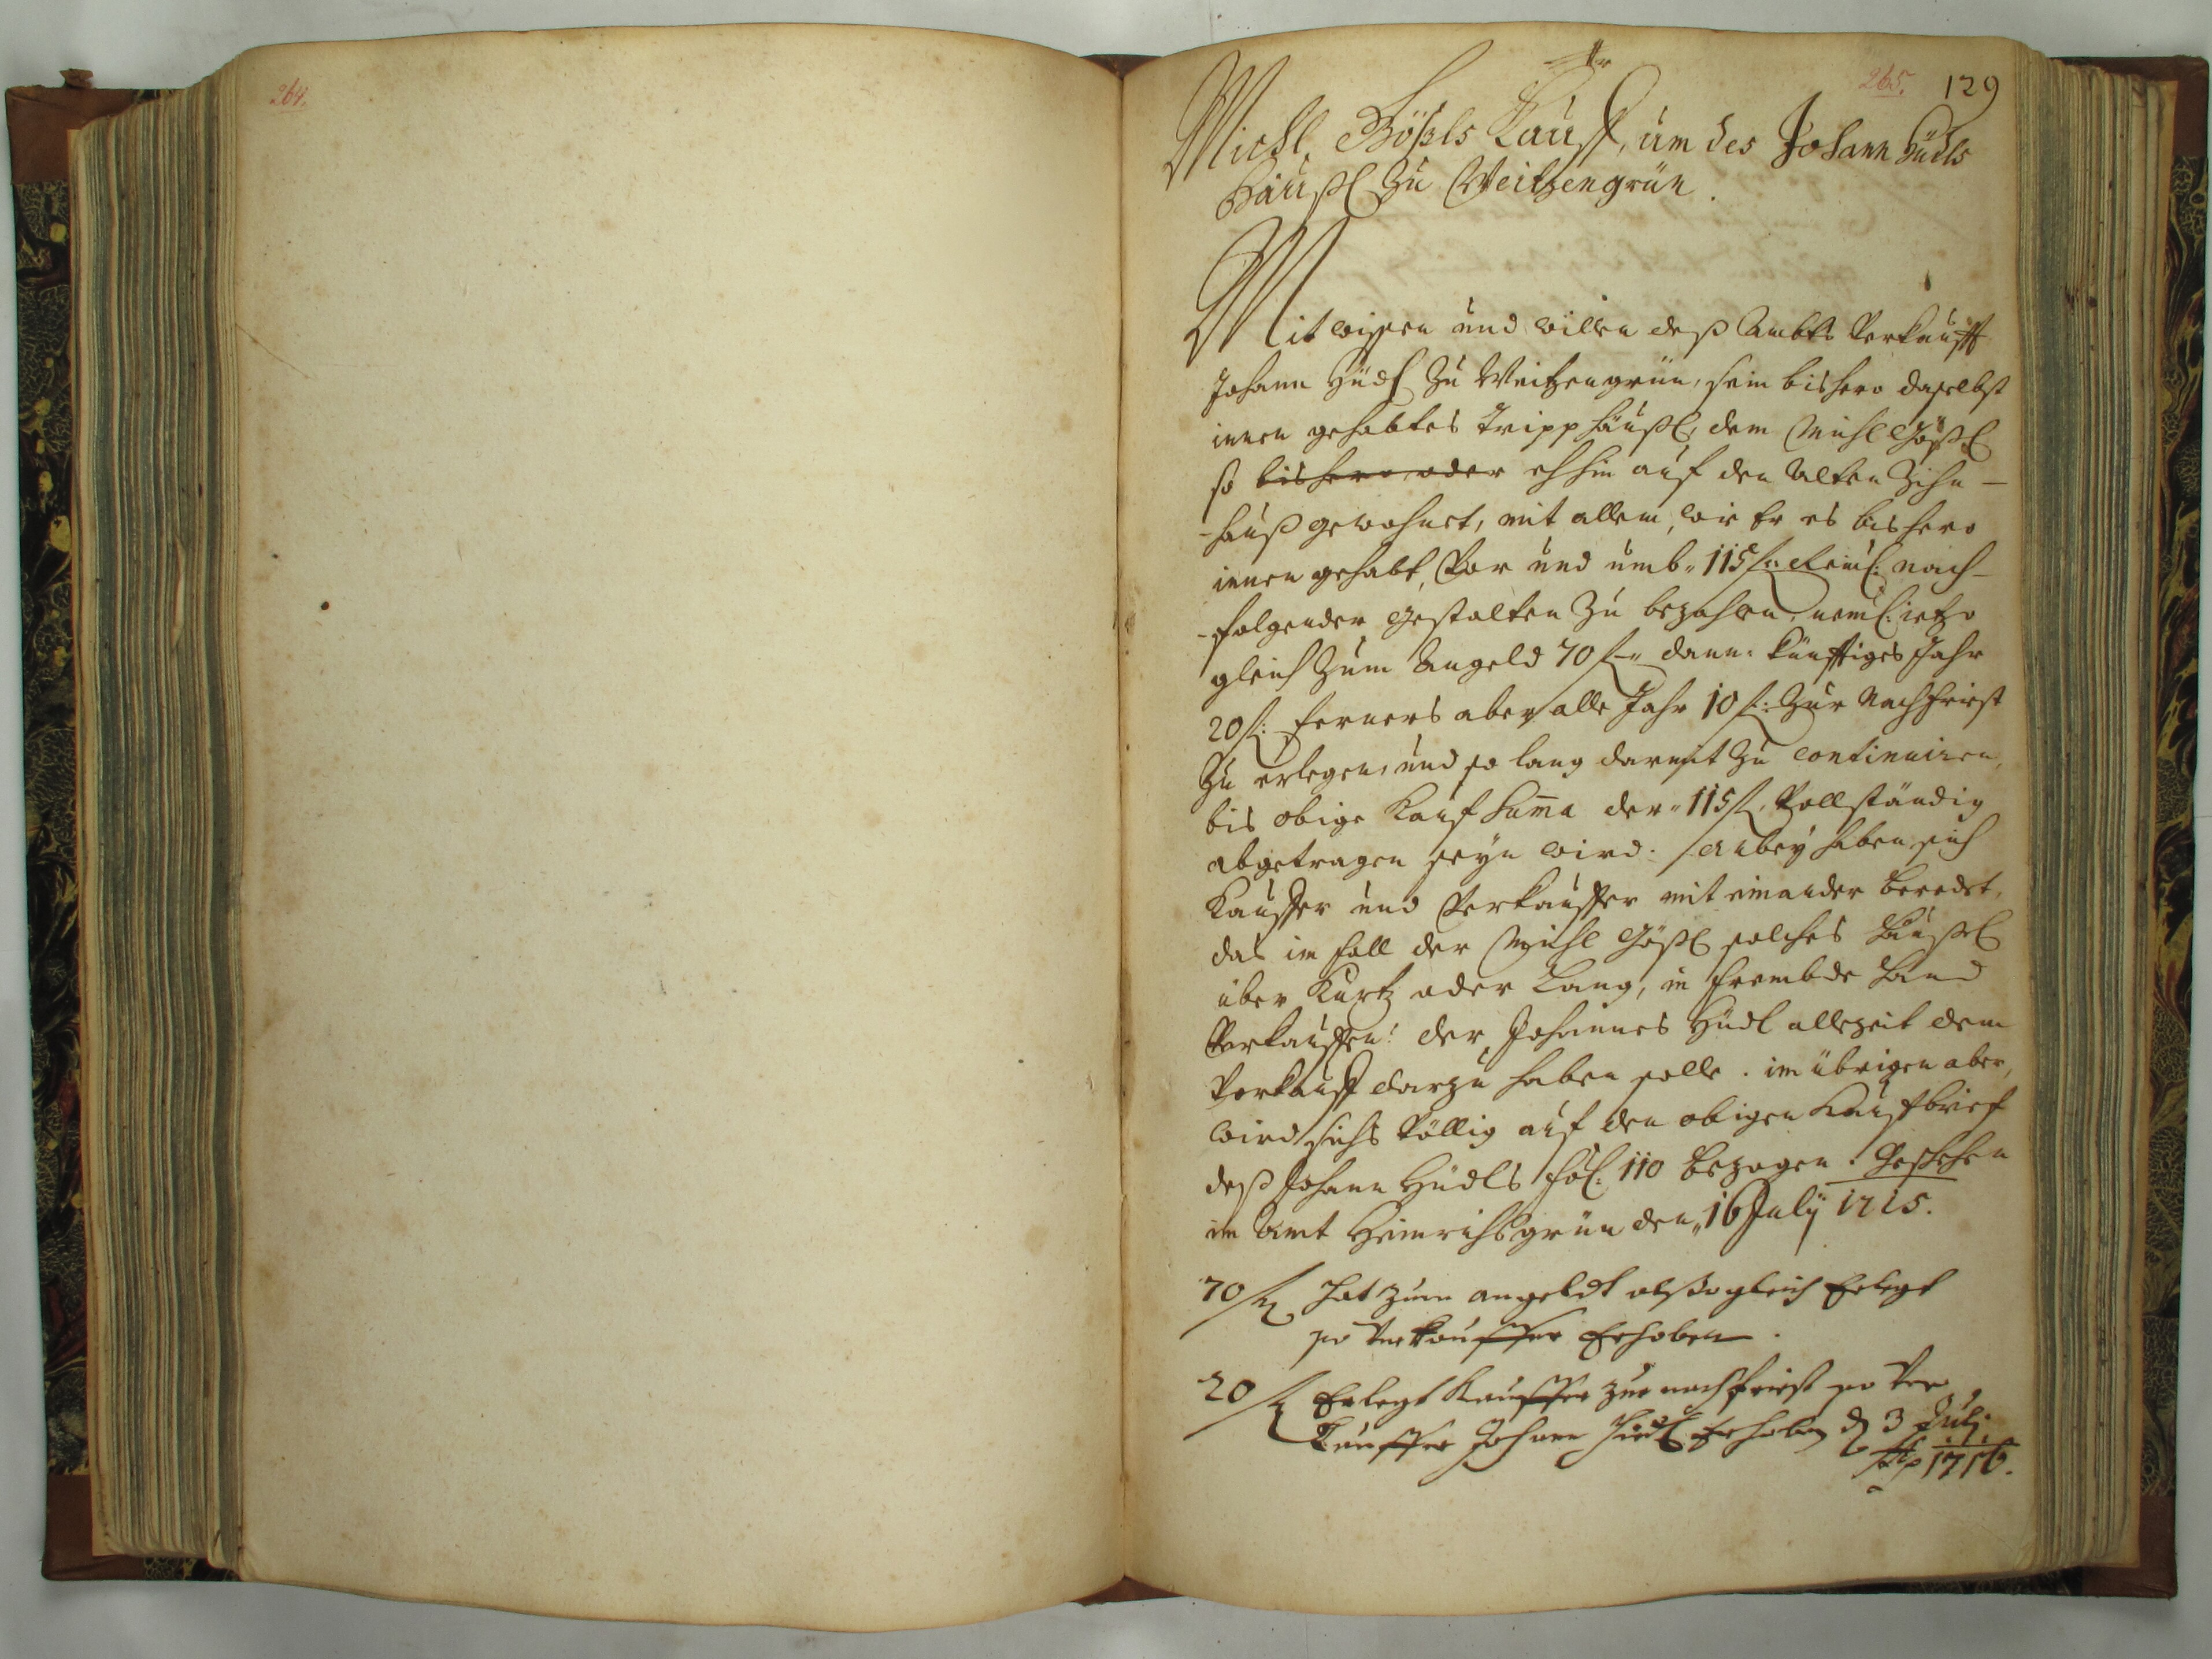 264.
265. 129
Michl Gößls Kauff, um des Johann Hüdls
Häußl zu Weitzengrün.
Mit wissen und willen deß Ambts Verkaufft
Johann Hüdl zu Weitzengrün, sein bishero daselbst
innen gehabtes Tripphäußl, dem Michl Gößl
so bishero oder ehhin auf den Alten Zihn-
-hauß gewohnet, mit allem, wie Er es bishero
innen gehabt, Vor und umb 115 fl: Reinl: nach-
-folgender gestalten zu bezahlen, neml: ietzo
gleich zum Angeld 70 fl: dann künfftiges Jahr
20 fl: ferners aber alle Jahr 10 fl: zur Nachfrist
zu erlegen, und so lang darmit zu continuiren,
bis obige Kauf Suma der 115 fl. Vollständig
abgetragen seyn wird. Anbey haben sich
Kauffer und Verkauffer mit einander beredet,
das im fall der Michl Gößl solches Häußl
über Kurtz oder Lang, in frembde Händ
Verkauffen: der Johannes Hüdl allezeit dem
Vorkauff darzu haben solle. im übrigen aber,
wird sichs völlig auf den obigen Kauffbrief
deß Johann Hüdls fol: 110 bezogen. Geschehen
im Amt Heinrichsgrün den 16 July 1715.
70 fl Hat zum angeldt alßogleich Erlegt
so Verkauffer Erhoben.
20 fl Erlegt Kauffer zur nachfrist so Ver
Kauffer Johann Hüdl Erhoben d 3 July
1716.